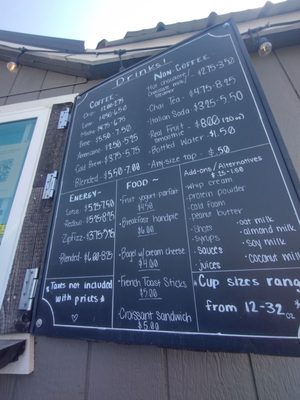 Drinks!
Coffee:
Drip: $2.00-2.75
Latte $4.50-6.50
Mocha $4.75-6.75
Breve $5.50-7.50
Americano $2.50-5.25
Cold Brew $3.75-5.75
Blended $5.50-7.00
Non Coffee:
Hot chocolate/
$2.75-3.50
Chai Tea $4.75-
Italian Soda $3.25-5.50
Real Fruit $8.00
Bottled Water $1.50
Any size tap - $.50
Energy -
Lotus
Redbull
Zipfizz $3.75-
Blended-
Food ~
Fruit yogurt parfait
$4.50
Breakfast handpie
$6.00
Bagel w/ cream cheese
$4.00
French Toast Sticks
$5.00
Croissant Sandwich
$5.00
Add-ons / Alternatives
$.25-$1.50
whip cream
protein powder
Cold Foam
Peanut butter
Shots
Syrups
sauces
juices
oat milk
almond milk
soy milk
coconut milk
*Taxes not included
with prices*
*Cup sizes range
from 12-32oz